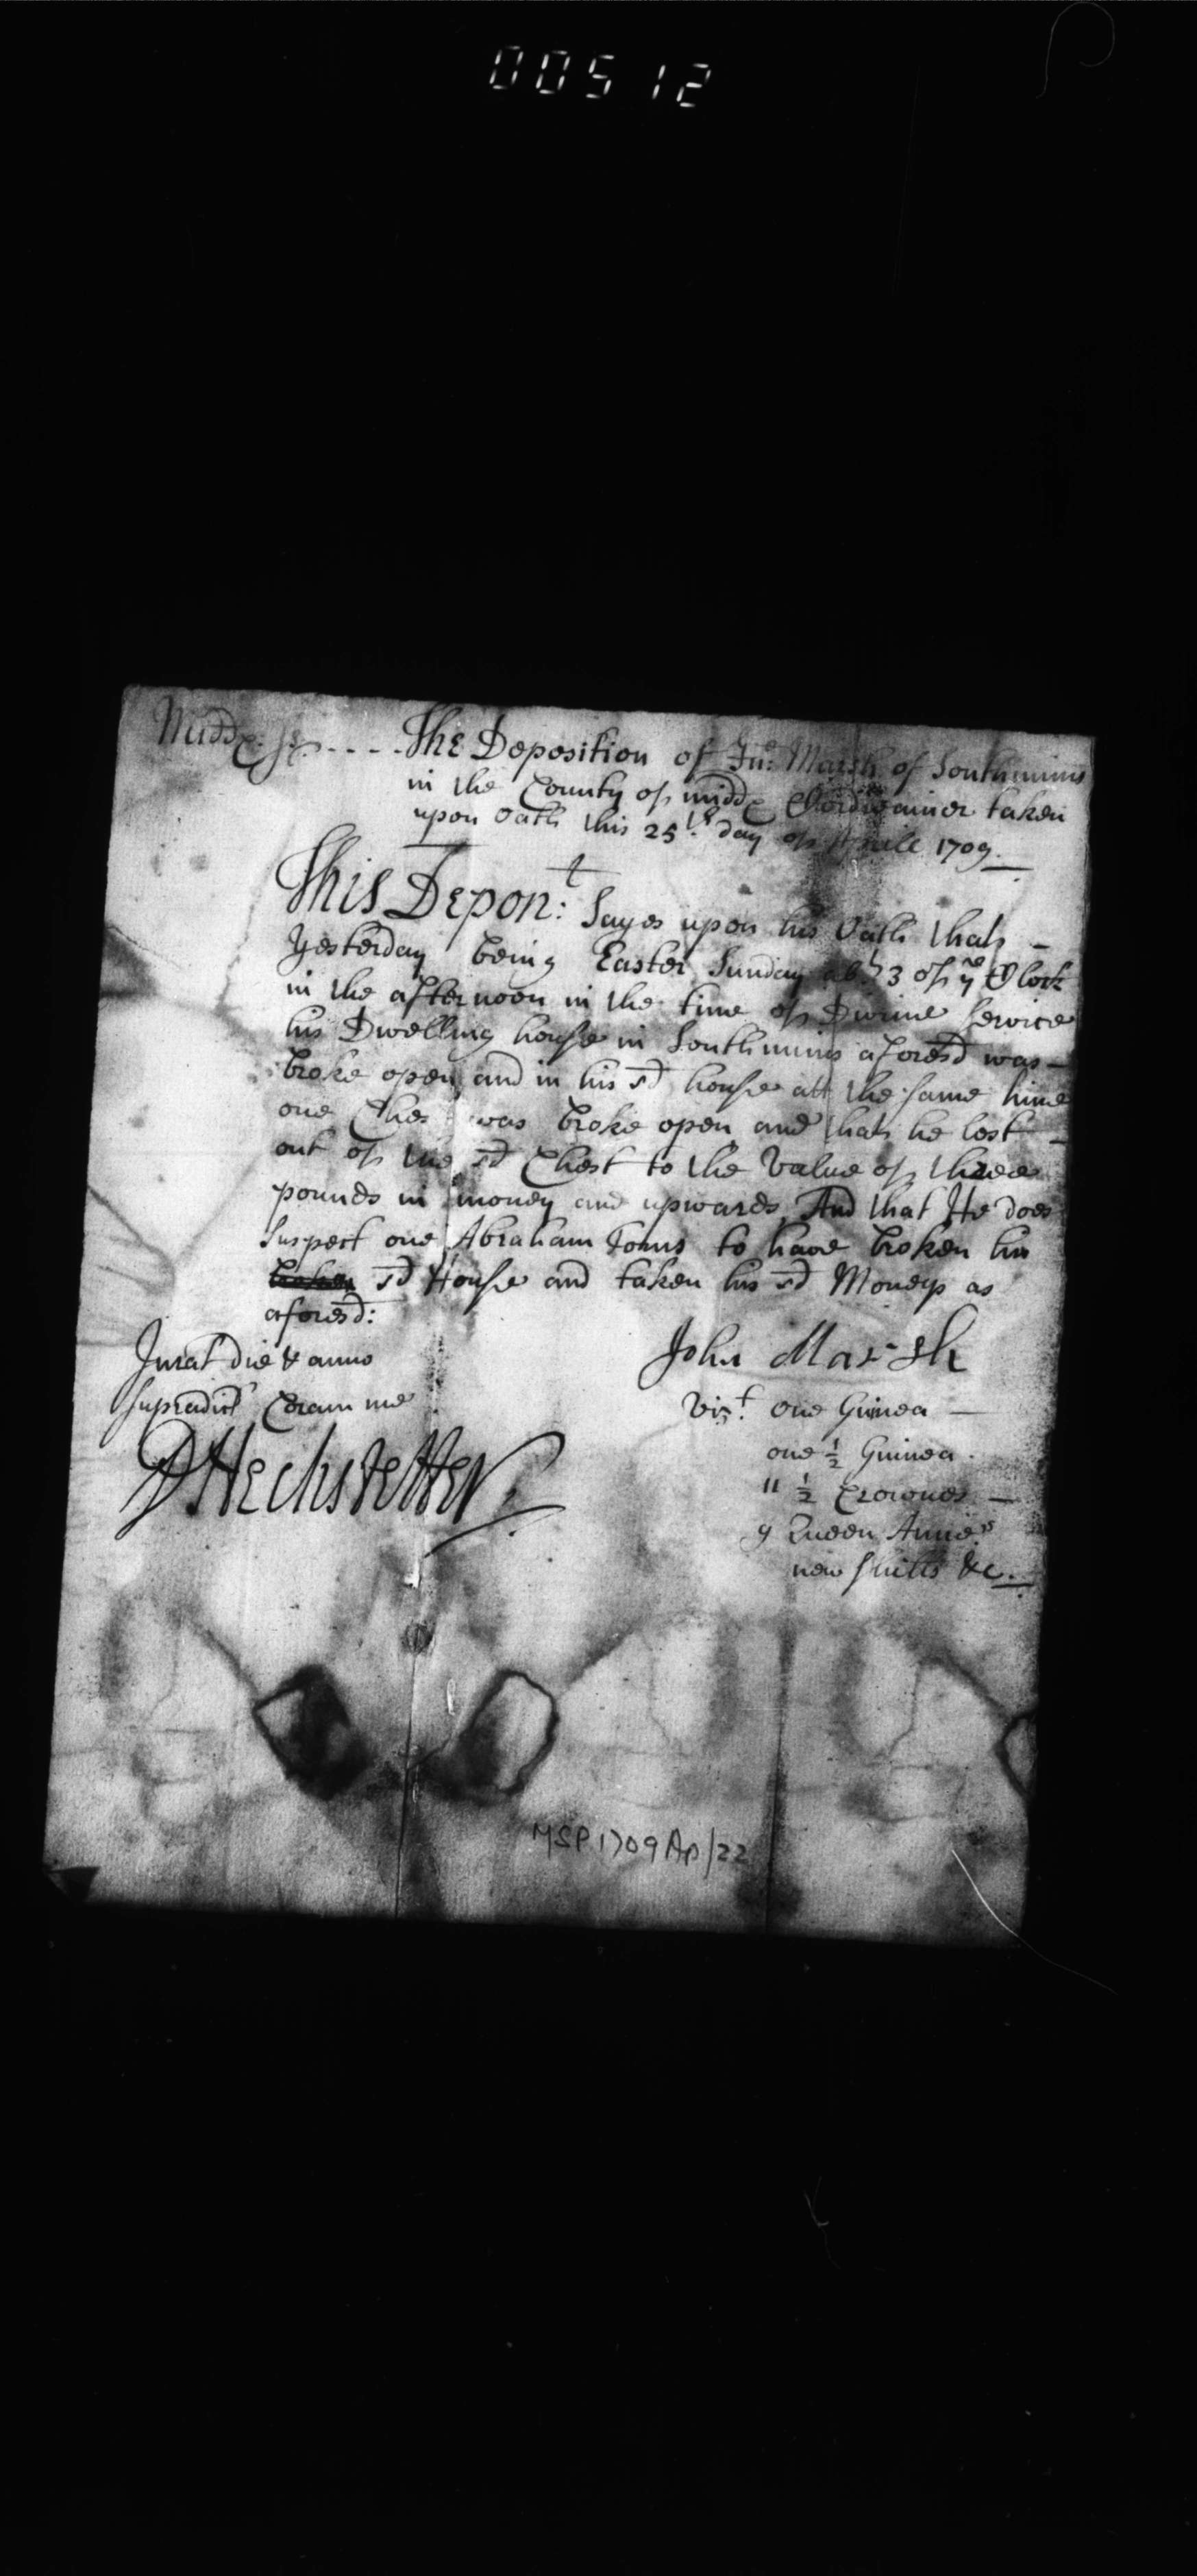 00512
Middx: ss. - - - - The Deposition of Jno: Marsh of Southmims
in the County of Middx Cordwainer taken
upon Oath this 25th. day of Aprile 1709.
This Depont: Sayes upon his Oath that -
Yesterday being Easter Sunday abt 3 of ye Clock
in the afternoon in the time of Divine Service
his Dwelling house in Southmims aforesd was -
broke open and in his sd house att the same time
one Ches was broke open and that he lost -
out of the sd Chest to the Value of three
pounds in money and upwards And that He does
Suspect one Abraham Toms to have broken his
sd House and taken his sd Moneys as
aforesd:
Jurat die & anno
supradict Coram me
DHechstetter
John Marsh
Vizt. one Guinea -
one ½ Guinea.
11 ½ Crownes -
9 Queen Annes
new shills &c.
MSP.1709 Ap/22